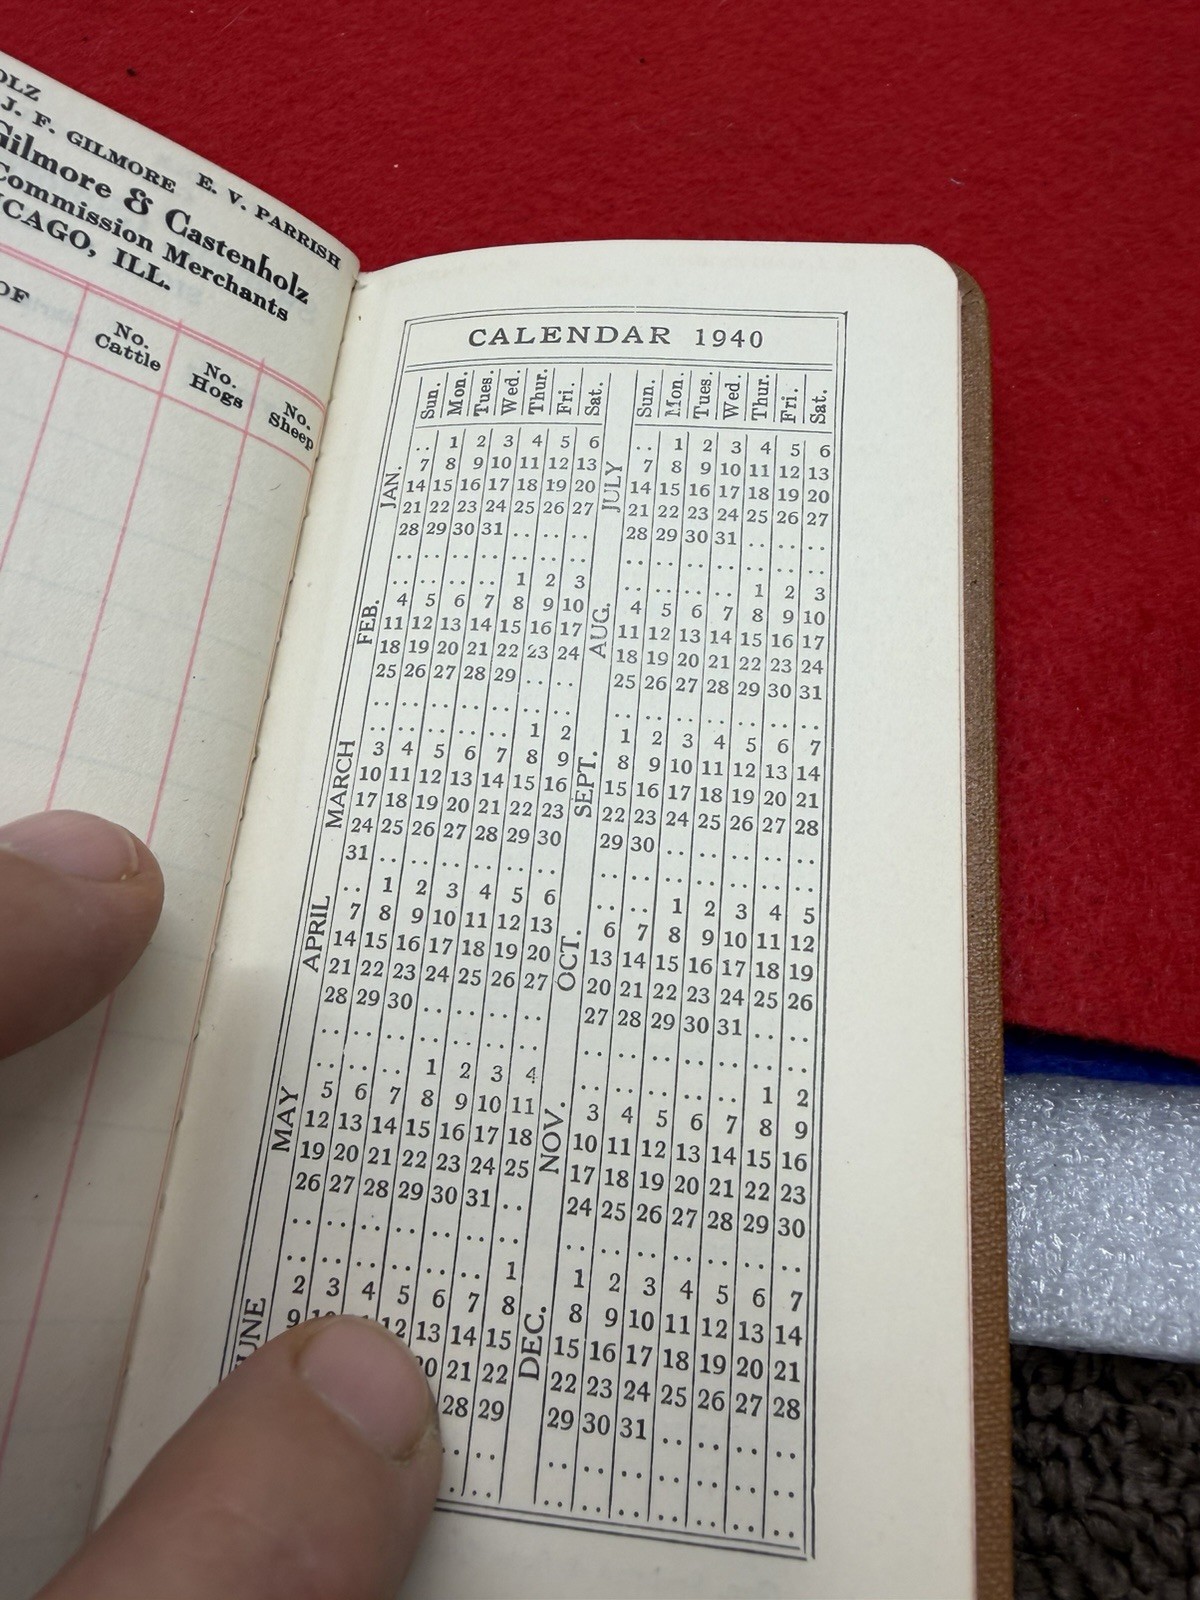 OLZ
J. F. GILMORE E. V. PARRISH
Gilmore & Castenholz
Commission Merchants
ICAGO, ILL.
OF
No. Cattle
No. Hogs
No. Sheep
CALENDAR 1940
Sun. Mon. Tues. Wed. Thur. Fri. Sat.
JAN.
.. 1 2 3 4 5 6
7 8 9 10 11 12 13
14 15 16 17 18 19 20
21 22 23 24 25 26 27
28 29 30 31 .. .. ..
.. .. .. .. .. .. ..
FEB.
.. .. .. .. 1 2 3
4 5 6 7 8 9 10
11 12 13 14 15 16 17
18 19 20 21 22 23 24
25 26 27 28 29 .. ..
.. .. .. .. .. .. ..
MARCH
.. .. .. .. .. 1 2
3 4 5 6 7 8 9
10 11 12 13 14 15 16
17 18 19 20 21 22 23
24 25 26 27 28 29 30
31 .. .. .. .. .. ..
APRIL
.. 1 2 3 4 5 6
7 8 9 10 11 12 13
14 15 16 17 18 19 20
21 22 23 24 25 26 27
28 29 30 .. .. .. ..
.. .. .. .. .. .. ..
MAY
.. .. .. 1 2 3 4
5 6 7 8 9 10 11
12 13 14 15 16 17 18
19 20 21 22 23 24 25
26 27 28 29 30 31 ..
.. .. .. .. .. .. ..
UNE
.. .. .. .. .. .. 1
2 3 4 5 6 7 8
9 12 13 14 15
21 22
28 29
Sun. Mon. Tues. Wed. Thur. Fri. Sat.
JULY
.. 1 2 3 4 5 6
7 8 9 10 11 12 13
14 15 16 17 18 19 20
21 22 23 24 25 26 27
28 29 30 31 .. .. ..
.. .. .. .. .. .. ..
AUG.
.. .. .. .. 1 2 3
4 5 6 7 8 9 10
11 12 13 14 15 16 17
18 19 20 21 22 23 24
25 26 27 28 29 30 31
.. .. .. .. .. .. ..
SEPT.
1 2 3 4 5 6 7
8 9 10 11 12 13 14
15 16 17 18 19 20 21
22 23 24 25 26 27 28
29 30 .. .. .. .. ..
.. .. .. .. .. .. ..
OCT.
.. .. 1 2 3 4 5
6 7 8 9 10 11 12
13 14 15 16 17 18 19
20 21 22 23 24 25 26
27 28 29 30 31 .. ..
.. .. .. .. .. .. ..
NOV.
.. .. .. .. .. 1 2
3 4 5 6 7 8 9
10 11 12 13 14 15 16
17 18 19 20 21 22 23
24 25 26 27 28 29 30
.. .. .. .. .. .. ..
DEC.
1 2 3 4 5 6 7
8 9 10 11 12 13 14
15 16 17 18 19 20 21
22 23 24 25 26 27 28
29 30 31 .. .. .. ..
.. .. .. .. .. .. ..
.. .. .. .. .. .. ..